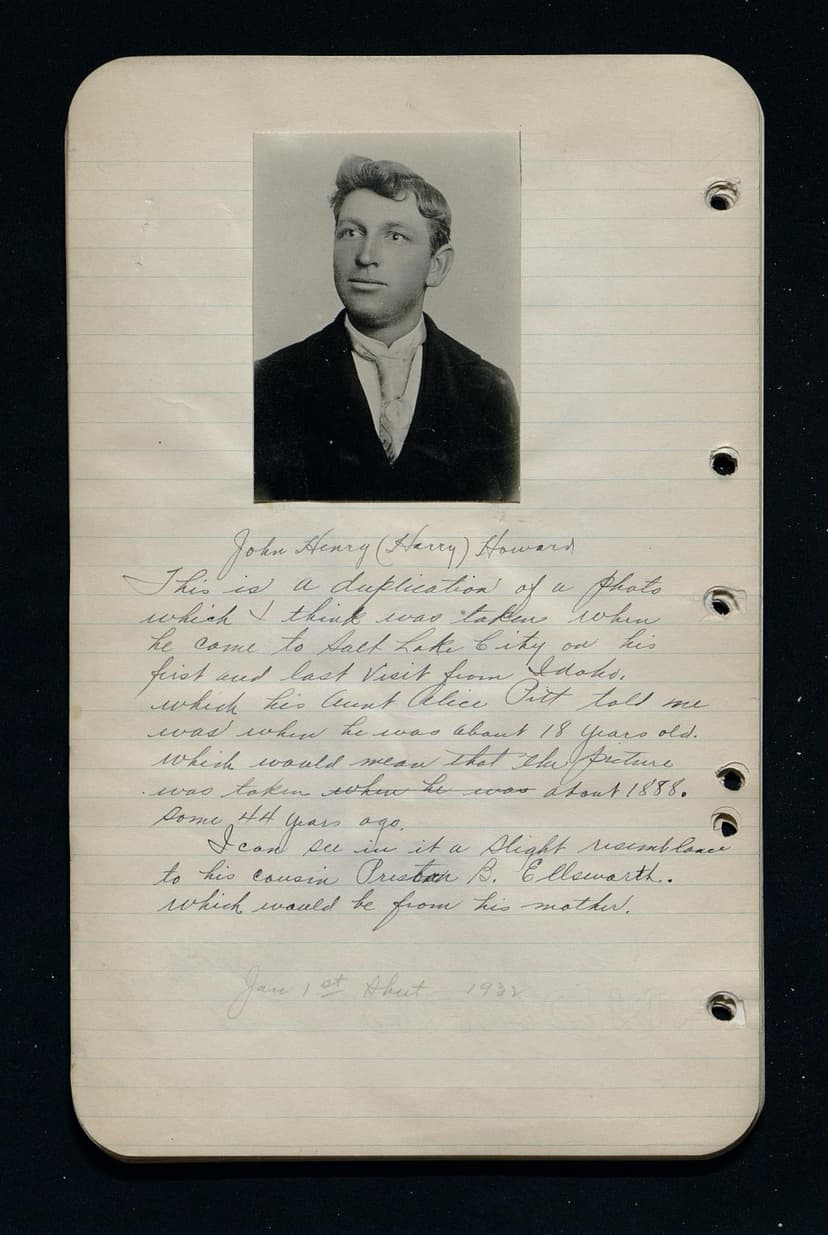 John Henry (Harry) Howard
This is a duplication of a photo
which I think was taken when
he come to Salt Lake City on his
first and last visit from Idaho.
which his Aunt Alice Pitt told me
was when he was about 18 years old.
which would mean that the picture
was taken when he was about 1888.
some 44 years ago.
I can see in it a slight resemblance
to his cousin Preston B. Ellsworth.
which would be from his mother.
Jan 1st 1932